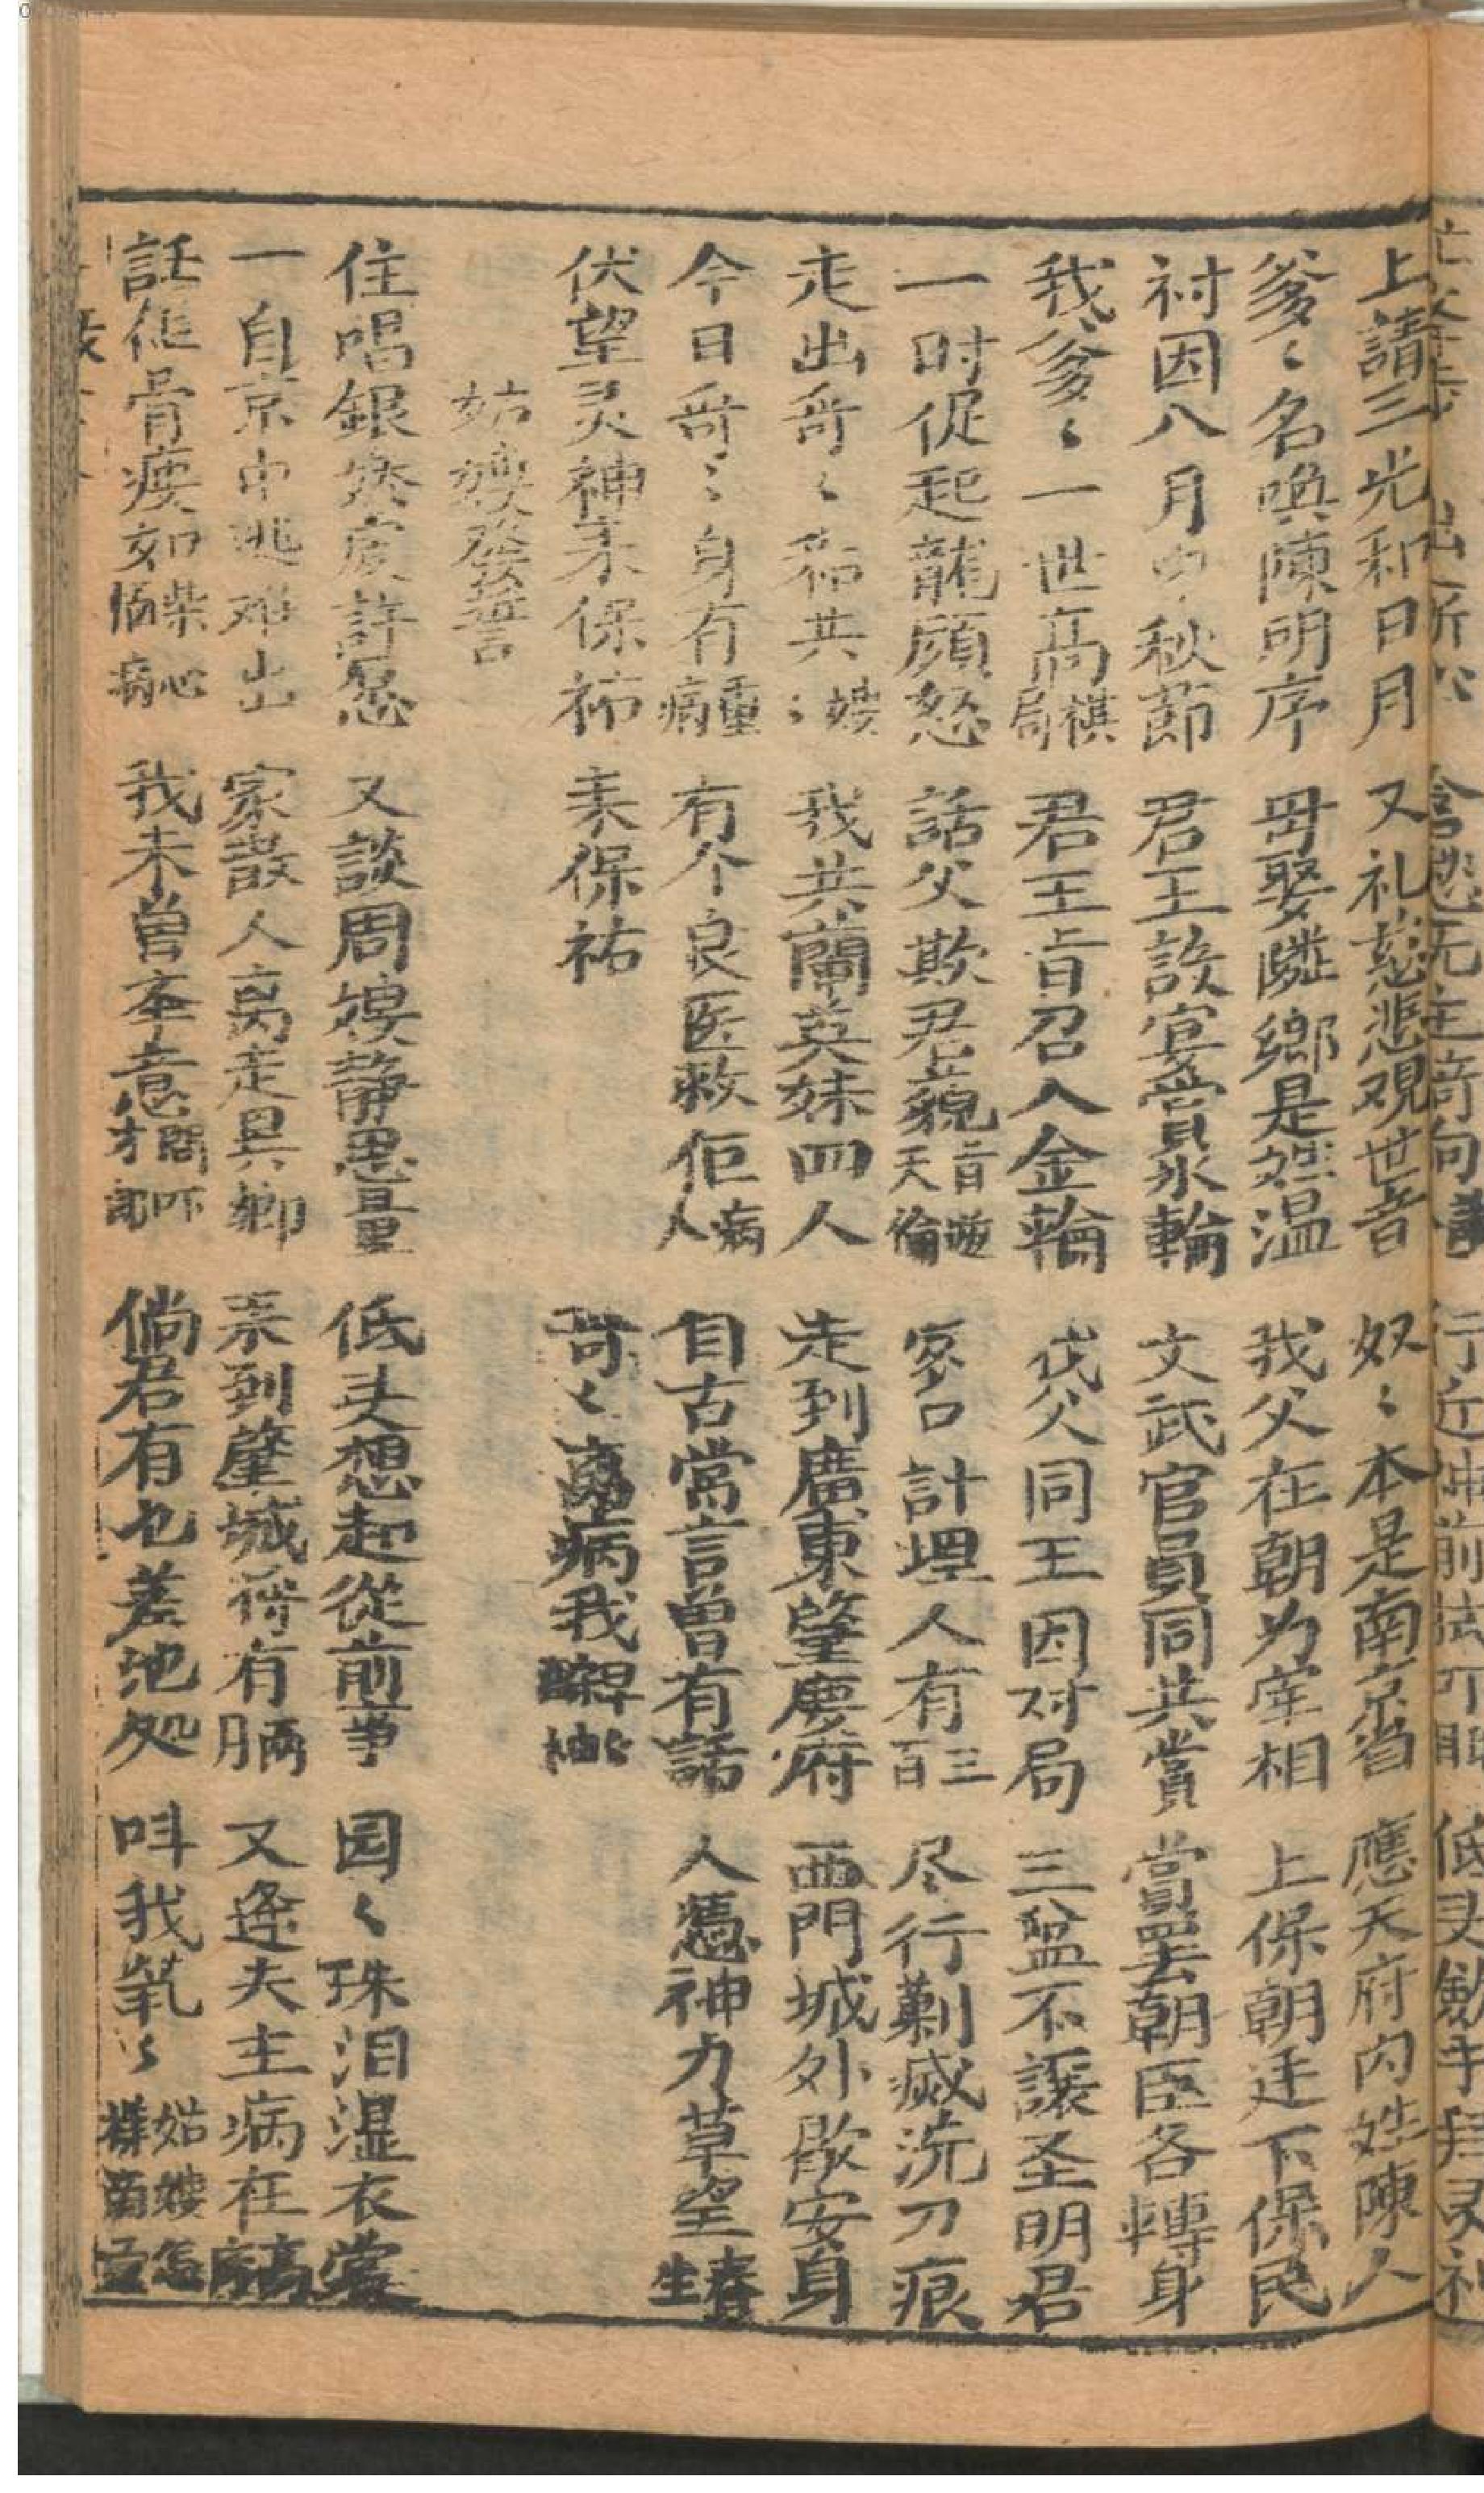 上請三光和日月 又礼慈悲观世音 奴〻本是南京省 應天府内姓陳人
爹〻名喚陳明序 母娶隣鄉是姓温 我父在朝为宰相 上保朝廷下保民
忖因八月中秋節 君王設宴賞氷輪 文武官員同共賞 賞罢朝臣各轉身
我爹〻一世高棋局 君王旨召入金輪 我父同王因对局 三盆不讓圣明君
一时促起龍顔怒 話父欺君藐旨逆天倫 家口計埋人有三百 尽行剿滅洗刀痕
走出哥〻和共嫂〻 我共蘭英妹四人 走到廣東肇慶府 西門城外歇安身
今日哥〻身有重病 有个良医救佢病人 自古常言曾有話 人憑神力草望春生
伏望灵神来保祐 来保祐 哥〻离病我
姑嫂發誓
住唱銀嬌虔許愿 又談周娘静思量 低头想起從前事 园〻珠泪湿衣裳
一自京中逃难出 家散人离走異鄉 来到肇城將有月兩 又逢夫主病在高床
話佢骨瘦如柴心恼病 我未曾李意問吓才郎 倘君有乜差池処 呌我㷫〻姑嫂怎樣商量